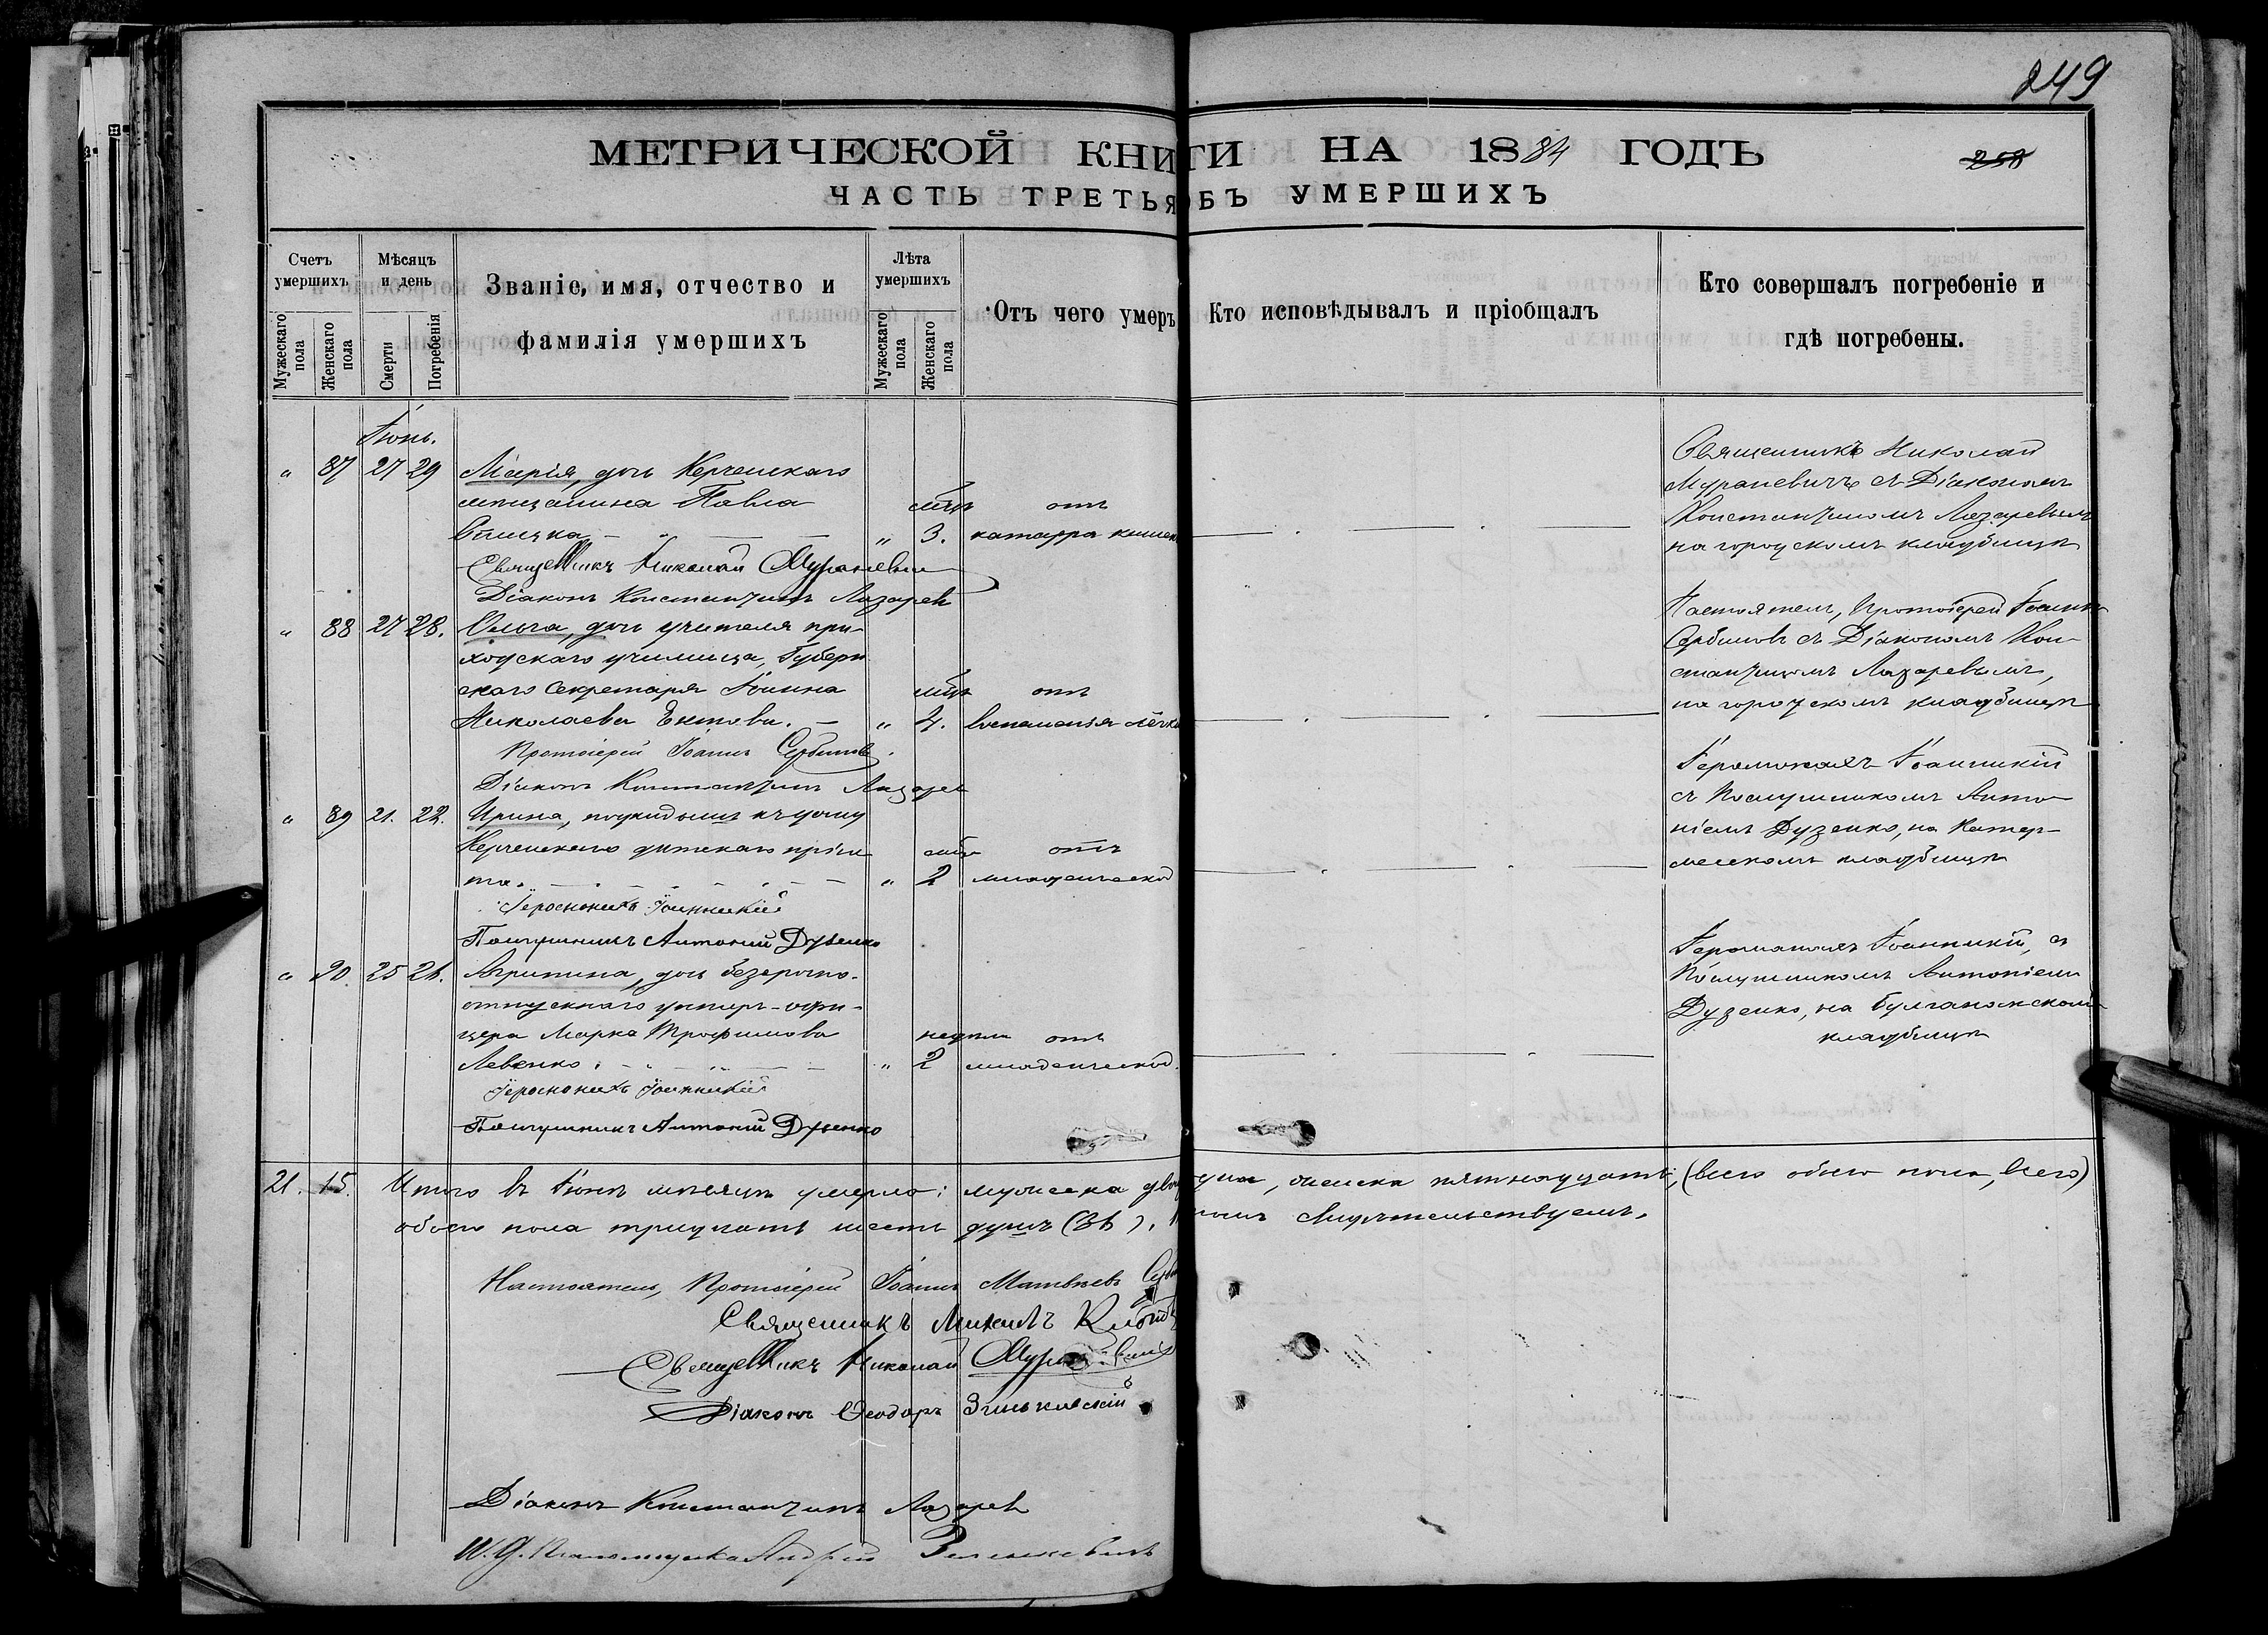 249
МЕТРИЧЕСКОЙ КНИГИ НА 1884 ГОДЪ
258
ЧАСТЬ ТРЕТЬЯ ОБЪ УМЕРШИХЪ
Счетъ умершихъ
Мужескаго пола
Женскаго пола
Мѣсяцъ и день
Смерти
Погребенія
Званіе, имя, отчество и
фамилія умершихъ
Лѣта умершихъ
Мужескаго пола
Женскаго пола
Отъ чего умеръ
Кто исповѣдывалъ и пріобщалъ
Кто совершалъ погребеніе и
гдѣ погребены.
Іюнь.
" 87 27 29 Марія, дочь Керченскаго
мѣщанина Павла мѣс. отъ
" 3. катарра кишекъ
Священникъ Николай Мураневичъ
Діаконъ Константинъ Лазаревъ
Священникъ Николай
Мураневичъ съ Діакономъ
Константиномъ Лазаревымъ
на городскомъ кладбищѣ
" 88 27 28. Ольга, дочь учителя при-
ходскаго училища, Губерн
скаго Секретаря Іоанна мѣс. отъ
Николаева " 4. воспаленія лёгк
Протоіерей Іоаннъ Сербиновъ.
Діаконъ Константинъ Лазаревъ
Настоятель, Протоіерей Іоаннъ
Сербиновъ съ Діакономъ Кон-
стантиномъ Лазаревымъ,
на городскомъ кладбищѣ
" 89 21. 22. Ирина, подкидышъ къ дому
Керченскаго дѣтскаго прію мѣс. отъ
та. " 2 младенческой
Іеромонахъ Іоанникій
Послушникъ Антоній Дузенко
Іеромонахъ Іоанникій
съ Послушникомъ Анто-
ніемъ Дузенко, на Катер-
лесскомъ кладбищѣ
" 90. 25 26. Агрипина, дочь безсрочно-
отпускнаго унтеръ-офи-
цера Марка Трофимова недѣли отъ
Левенко. " 2 младенческой.
Іеромонахъ Іоанникій
Послушникъ Антоній Дузенко
Іеромонахъ Іоанникій, съ
Послушникомъ Антоніемъ
Дузенко, на Булганакскомъ
кладбищѣ
21. 15. Итого въ Іюнѣ мѣсяцѣ умерло: мужеска двад одна, женска пятнадцать, (всего обоего пола, всего)
обоего пола тридцать шесть душъ (36). свидѣтельствуемъ.
Настоятель, Протоіерей Іоаннъ Матвѣевъ Серб
Священникъ Михаилъ
Священникъ Николай Мураневичъ
Діаконъ Ѳеодоръ Зиньковскій
Діаконъ Константинъ Лазаревъ
И. д. Псаломщика Андрей